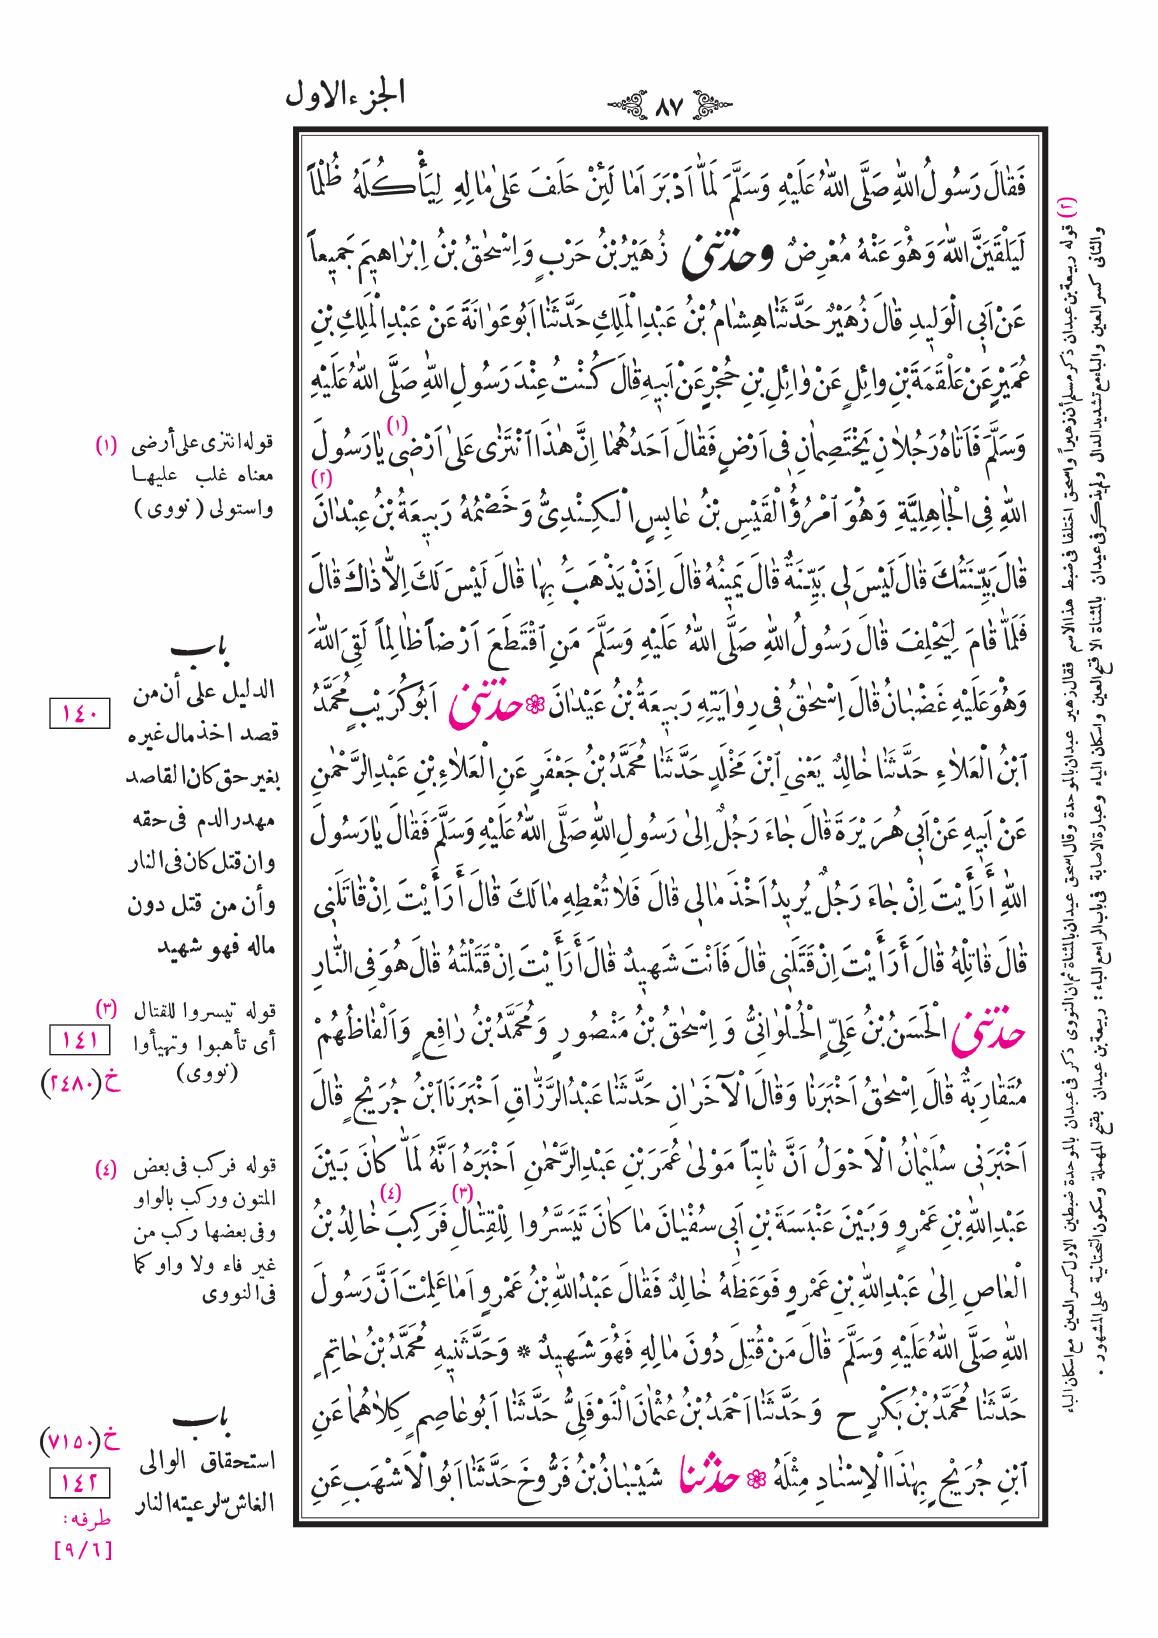 الجزء الاول
٨٧
فَقَالَ رَسُولُ اللهِ صَلَّى اللهُ عَلَيْهِ وَسَلَّمَ لَمَّا اَدْبَرَ اَمَا لَئِنْ حَلَفَ عَلَى مَالِهِ لِيَأْكُلَهُ ظُلْماً
لَيَلْقَيَنَّ اللهَ وَهُوَ عَنْهُ مُعْرِضٌ وحَدَّثَنِي زُهَيْرُ بْنُ حَرْبٍ وَاِسْحٰقُ بْنُ اِبْرَاهِيمَ جَمِيعاً
عَنْ اَبِي الْوَلِيدِ قَالَ زُهَيْرٌ حَدَّثَنَا هِشَامُ بْنُ عَبْدِ الْمَلِكِ حَدَّثَنَا اَبُو عَوَانَةَ عَنْ عَبْدِ الْمَلِكِ بْنِ
عُمَيْرٍ عَنْ عَلْقَمَةَ بْنِ وَائِلٍ عَنْ وَائِلِ بْنِ حُجْرٍ عَنْ اَبِيهِ قَالَ كُنْتُ عِنْدَ رَسُولِ اللهِ صَلَّى اللهُ عَلَيْهِ
وَسَلَّمَ فَاَتَاهُ رَجُلَانِ يَخْتَصِمَانِ فِي اَرْضٍ فَقَالَ اَحَدُهُمَا اِنَّ هٰذَا انْتَزَى عَلَى اَرْضِي (١) يَا رَسُولَ
اللهِ فِي الْجَاهِلِيَّةِ وَهُوَ امْرُؤُ الْقَيْسِ بْنُ عَابِسٍ الْكِنْدِيُّ وَخَصْمُهُ رَبِيعَةُ بْنُ عِبْدَانَ (٢)
قَالَ بَيِّنَتُكَ قَالَ لَيْسَ لِي بَيِّنَةٌ قَالَ يَمِينُهُ قَالَ اِذَنْ يَذْهَبَ بِهَا قَالَ لَيْسَ لَكَ اِلَّا ذَاكَ قَالَ
فَلَمَّا قَامَ لِيَحْلِفَ قَالَ رَسُولُ اللهِ صَلَّى اللهُ عَلَيْهِ وَسَلَّمَ مَنِ اقْتَطَعَ اَرْضاً ظَالِماً لَقِيَ اللهَ
وَهُوَ عَلَيْهِ غَضْبَانُ قَالَ اِسْحٰقُ فِي رِوَايَتِهِ رَبِيعَةُ بْنُ عَيْدَانَ ❁ حَدَّثَنِي اَبُو كُرَيْبٍ مُحَمَّدُ
ابْنُ الْعَلَاءِ حَدَّثَنَا خَالِدٌ يَعْنِي ابْنَ مَخْلَدٍ حَدَّثَنَا مُحَمَّدُ بْنُ جَعْفَرٍ عَنِ الْعَلَاءِ بْنِ عَبْدِ الرَّحْمٰنِ
عَنْ اَبِيهِ عَنْ اَبِي هُرَيْرَةَ قَالَ جَاءَ رَجُلٌ اِلَى رَسُولِ اللهِ صَلَّى اللهُ عَلَيْهِ وَسَلَّمَ فَقَالَ يَا رَسُولَ
اللهِ أَرَأَيْتَ اِنْ جَاءَ رَجُلٌ يُرِيدُ اَخْذَ مَالِي قَالَ فَلَا تُعْطِهِ مَالَكَ قَالَ أَرَأَيْتَ اِنْ قَاتَلَنِي
قَالَ قَاتِلْهُ قَالَ أَرَأَيْتَ اِنْ قَتَلَنِي قَالَ فَاَنْتَ شَهِيدٌ قَالَ أَرَأَيْتَ اِنْ قَتَلْتُهُ قَالَ هُوَ فِي النَّارِ
حَدَّثَنِي الْحَسَنُ بْنُ عَلِيٍّ الْحُلْوَانِيُّ وَ اِسْحٰقُ بْنُ مَنْصُورٍ وَمُحَمَّدُ بْنُ رَافِعٍ وَاَلْفَاظُهُمْ
مُتَقَارِبَةٌ قَالَ اِسْحٰقُ اَخْبَرَنَا وَقَالَ الْآخَرَانِ حَدَّثَنَا عَبْدُ الرَّزَّاقِ اَخْبَرَنَا ابْنُ جُرَيْجٍ قَالَ
اَخْبَرَنِي سُلَيْمَانُ الْاَحْوَلُ اَنَّ ثَابِتاً مَوْلَى عُمَرَ بْنِ عَبْدِ الرَّحْمٰنِ اَخْبَرَهُ اَنَّهُ لَمَّا كَانَ بَيْنَ
عَبْدِ اللهِ بْنِ عَمْرٍو وَبَيْنَ عَنْبَسَةَ بْنِ اَبِي سُفْيَانَ مَا كَانَ تَيَسَّرُوا (٣) لِلْقِتَالِ فَرَكِبَ (٤) خَالِدُ بْنُ
الْعَاصِ اِلَى عَبْدِ اللهِ بْنِ عَمْرٍو فَوَعَظَهُ خَالِدٌ فَقَالَ عَبْدُ اللهِ بْنُ عَمْرٍو اَمَا عَلِمْتَ اَنَّ رَسُولَ
اللهِ صَلَّى اللهُ عَلَيْهِ وَسَلَّمَ قَالَ مَنْ قُتِلَ دُونَ مَالِهِ فَهُوَ شَهِيدٌ * وَحَدَّثَنِيهِ مُحَمَّدُ بْنُ حَاتِمٍ
حَدَّثَنَا مُحَمَّدُ بْنُ بَكْرٍ ح وَحَدَّثَنَا اَحْمَدُ بْنُ عُثْمَانَ النَّوْفَلِيُّ حَدَّثَنَا اَبُو عَاصِمٍ كِلَاهُمَا عَنِ
ابْنِ جُرَيْجٍ بِهٰذَا الْاِسْنَادِ مِثْلَهُ ❁ حَدَّثَنَا شَيْبَانُ بْنُ فَرُّوخَ حَدَّثَنَا اَبُو الْاَشْهَبِ عَنِ
(٢) قوله ربيعة بن عبدان ذكر مسلم أن زهيراً واسحق اختلفا فى ضبط هذا الاسم فقال زهير عبدان بالموحدة وقال اسحق عيدان بالمثناة ثم ان النووى ذكر فى عبدان بالموحدة ضبطين الاول كسر العين مع اسكان الباء
والثانى كسر العين والباء مع تشديد الدال ولم يذكر فى عيدان بالمثناة الا فتح العين واسكان الياء وعبارة الاصابة فى باب الراء مع الباء : ربيعة بن عيدان بفتح المهملة وسكون التحتانية على المشهور .
(١) قوله انتزى على أرضى
معناه غلب عليهـا
واستولى ( نووى )
باب
الدليل على أن من
١٤٠
قصد اخذ مال غيره
بغير حق كان القاصد
مهدر الدم فى حقه
وان قتل كان فى النار
وأن من قتل دون
ماله فهو شهيد
(٣) قوله تيسروا للقتال
١٤١
أى تأهبوا وتهيأوا
(نووى)
خ (٢٤٨٠)
(٤) قوله فركب فى بعض
المتون وركب بالواو
وفى بعضها ركب من
غير فاء ولا واو كما
فى النووى
باب
خ (٧١٥٠)
استحقاق الوالى
١٤٢
الغاش لرعيته النار
طرفه:
[٩/٦]